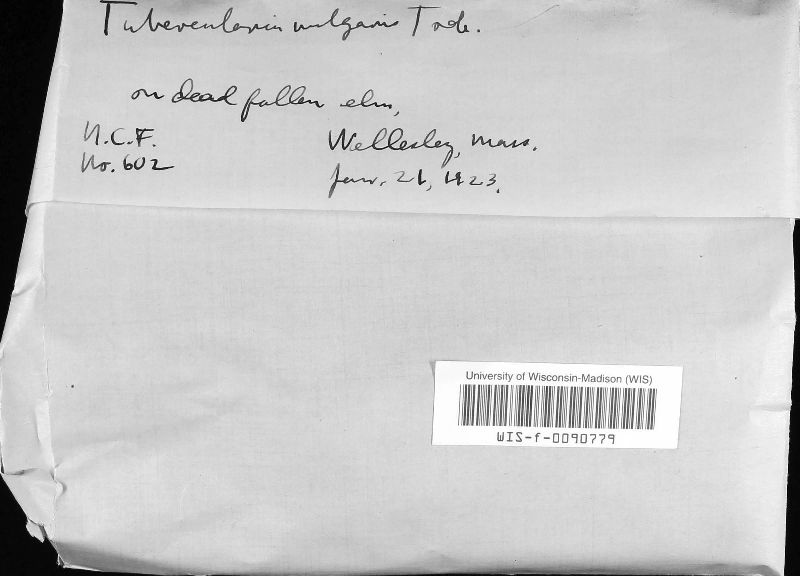 Tubercularia vulgaris Tode.
on dead fallen elm,
N.C.F.
No. 602
Wellesley, Mass.
Jan. 21, 1923.
University of Wisconsin-Madison (WIS)
WIS-f-0090779